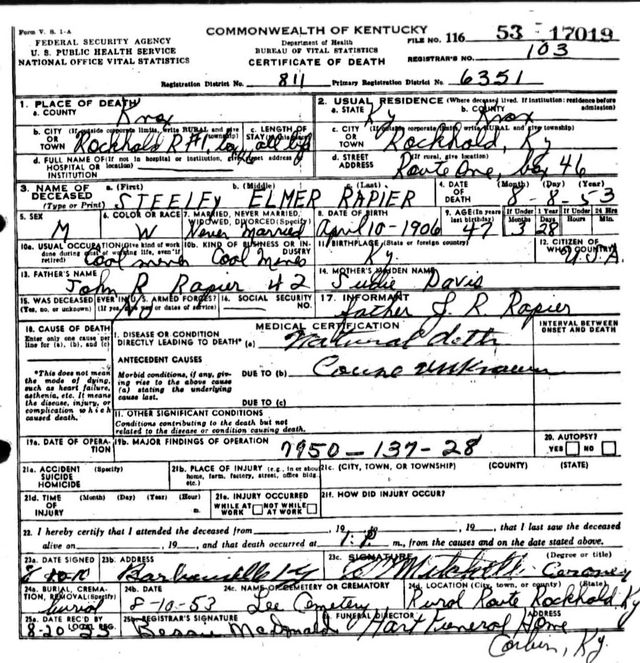 Form V. S. 1-A
COMMONWEALTH OF KENTUCKY
FILE NO. 116 53 17019
FEDERAL SECURITY AGENCY
U. S. PUBLIC HEALTH SERVICE
NATIONAL OFFICE VITAL STATISTICS
Department of Health
BUREAU OF VITAL STATISTICS
CERTIFICATE OF DEATH
REGISTRAR'S NO. 103
Registration District No. 811 Primary Registration District No. 6351
1. PLACE OF DEATH
a. COUNTY Knox
2. USUAL RESIDENCE (Where deceased lived. If institution: residence before admission)
a. STATE Ky b. COUNTY Knox
b. CITY (If outside corporate limits, write RURAL and give township) OR TOWN Rockhold R#1
c. LENGTH OF STAY all life
c. CITY (If outside corporate limits, write RURAL and give township) OR TOWN Rockhold, Ky
d. FULL NAME OF (If not in hospital or institution, give street address) HOSPITAL OR INSTITUTION
d. STREET ADDRESS (If rural, give location) Route One, box 46
3. NAME OF DECEASED (Type or Print)
a. (First) b. (Middle) c. (Last)
STEELEY ELMER RAPIER
4. DATE OF DEATH (Month) (Day) (Year) 8-8-53
5. SEX M
6. COLOR OR RACE W
7. MARRIED, NEVER MARRIED, WIDOWED, DIVORCED (Specify) Never Married
8. DATE OF BIRTH April 10-1906
9. AGE (In years last birthday) 47 If Under 1 Year Months 3 Days 28 If Under 24 Hrs
10a. USUAL OCCUPATION (Give kind of work done during most of working life, even if retired) Coal miner
10b. KIND OF BUSINESS OR INDUSTRY Coal Mines
11. BIRTHPLACE (State or foreign country) Ky
12. CITIZEN OF WHAT COUNTRY? U.S.A.
13. FATHER'S NAME John R Rapier 42
14. MOTHER'S MAIDEN NAME Sudie Davis
15. WAS DECEASED EVER IN U. S. ARMED FORCES? (Yes, no, or unknown) (If yes, give war or dates of service) NO
16. SOCIAL SECURITY NO.
17. INFORMANT father J. R. Rapier
18. CAUSE OF DEATH
Enter only one cause per line for (a), (b), and (c)
MEDICAL CERTIFICATION
INTERVAL BETWEEN ONSET AND DEATH
I. DISEASE OR CONDITION DIRECTLY LEADING TO DEATH* (a) Natural deth
ANTECEDENT CAUSES
Morbid conditions, if any, giving rise to the above cause (a) stating the underlying cause last.
DUE TO (b) Couse unknown
DUE TO (c)
*This does not mean the mode of dying, such as heart failure, asthenia, etc. It means the disease, injury, or complication which caused death.
II. OTHER SIGNIFICANT CONDITIONS
Conditions contributing to the death but not related to the disease or condition causing death.
19a. DATE OF OPERATION
19b. MAJOR FINDINGS OF OPERATION
7950-137-28
20. AUTOPSY? YES NO
21a. ACCIDENT SUICIDE HOMICIDE (Specify)
21b. PLACE OF INJURY (e.g., in or about home, farm, factory, street, office bldg., etc.)
21c. (CITY, TOWN, OR TOWNSHIP) (COUNTY) (STATE)
21d. TIME OF INJURY (Month) (Day) (Year) (Hour)
21e. INJURY OCCURRED WHILE AT WORK NOT WHILE AT WORK
21f. HOW DID INJURY OCCUR?
22. I hereby certify that I attended the deceased from , 19 , to , 19 , that I last saw the deceased
alive on , 19 , and that death occurred at 1:P m., from the causes and on the date stated above.
23a. DATE SIGNED
23b. ADDRESS Barbourville Ky
23c. SIGNATURE (Degree or title) Mitchell Coroner
24a. BURIAL, CREMATION, REMOVAL (Specify) burial
24b. DATE 8-10-53
24c. NAME OF CEMETERY OR CREMATORY Lee Cemetery
24d. LOCATION (City, town, or county) (State) Rural Route Rockhold, Ky
25a. DATE REC'D BY LOCAL REG. 8-20-53
25b. REGISTRAR'S SIGNATURE Bessie McDonald
FUNERAL DIRECTOR ADDRESS Hart Funeral Home
Corbin, Ky.